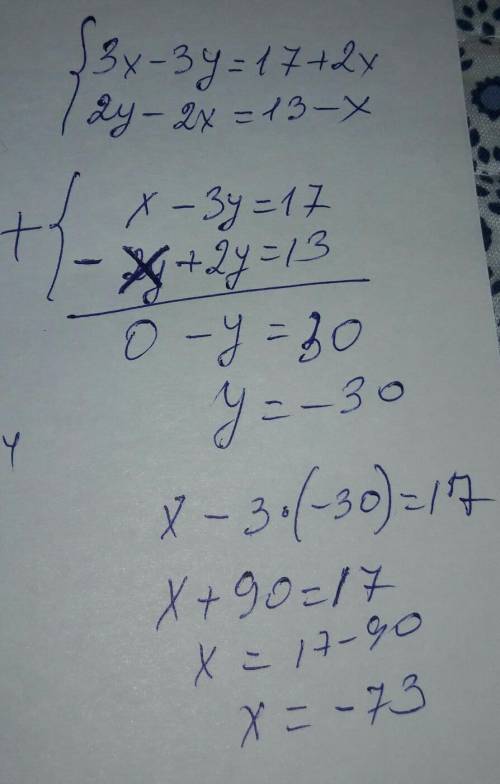 { 3x - 3y = 17 + 2x
2y - 2x = 13 - x
+ { x - 3y = 17
- x + 2y = 13
0 - y = 30
y = -30
x - 3·(-30) = 17
x + 90 = 17
x = 17 - 90
x = -73